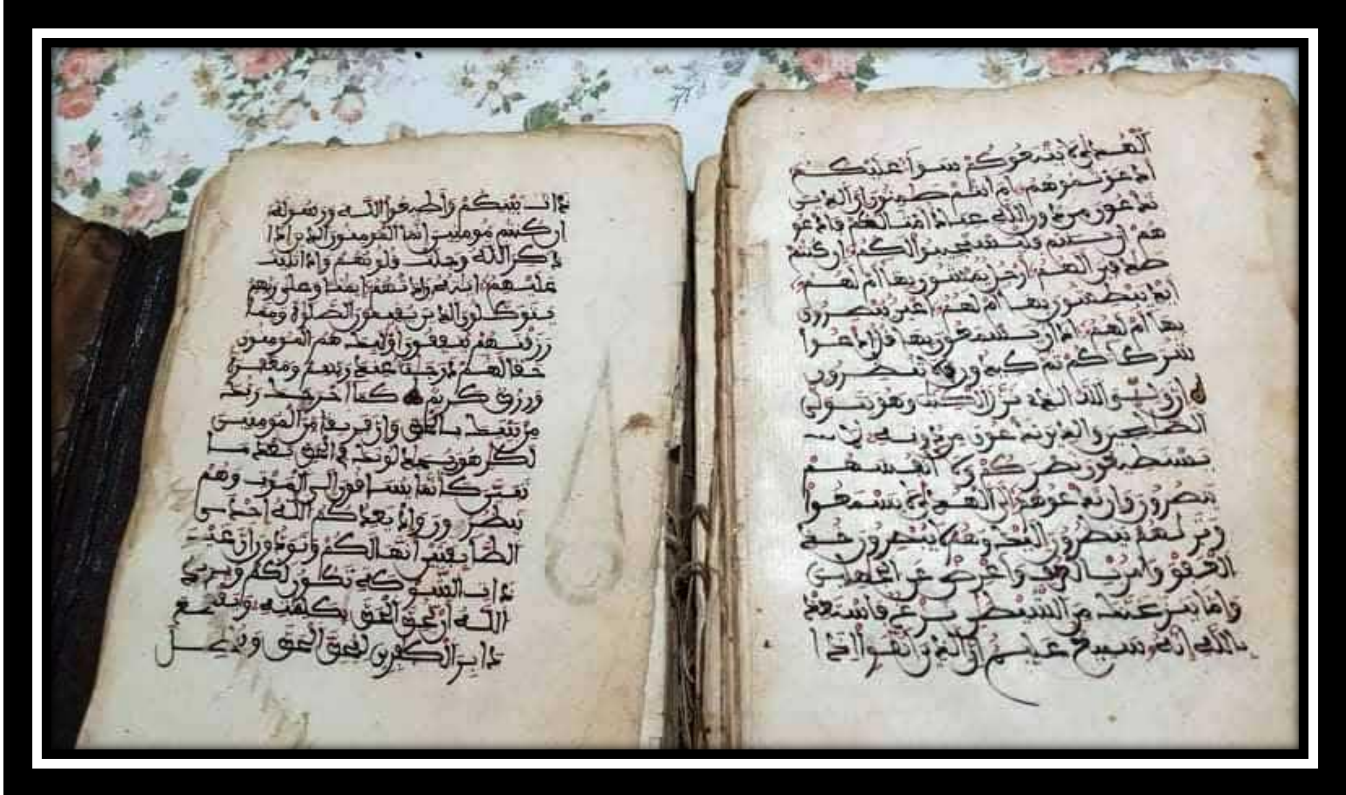 الهدى لا يتبعوكم سواء عليكم
أدعوتموهم أم أنتم صمتون إن الذين
تدعون من دون الله عباد أمثالكم فادعو
هم فليستجيبوا لكم إن كنتم
صدقين ألهم أرجل يمشون بها أم لهم
أيد يبطشون بها أم لهم أعين يبصرون
بها أم لهم ءاذان يسمعون بها قل ادعوا
شركاءكم ثم كيدون فلا تنظرون
إن وليي الله الذي نزل الكتب وهو يتولى
الصلحين والذين تدعون من دونه لا
يستطيعون نصركم ولا أنفسهم
ينصرون وإن تدعوهم إلى الهدى لا يسمعوا
وتريهم ينظرون إليك وهم لا يبصرون خذ
العفو وأمر بالعرف وأعرض عن الجهلين
وإما ينزغنك من الشيطن نزغ فاستعذ
بالله إنه سميع عليم إن الذين اتقوا إذا
ذات بينكم وأطيعوا الله ورسوله
إن كنتم مومنين إنما المومنون الذين إذا
ذكر الله وجلت قلوبهم وإذا تليت
عليهم ءايته زادتهم إيمنا وعلى ربهم
يتوكلون الذين يقيمون الصلوة ومما
رزقنهم ينفقون أوليك هم المومنون
حقا لهم درجت عند ربهم ومغفرة
ورزق كريم كما أخرجك ربك
من بيتك بالحق وإن فريقا من المومنين
لكرهون يجدلونك في الحق بعد ما
تبين كأنما يساقون إلى الموت وهم
ينظرون وإذ يعدكم الله إحدى
الطايفتين أنها لكم وتودون أن غير
ذات الشوكة تكون لكم ويريد
الله أن يحق الحق بكلمته ويقطع
دابر الكفرين ليحق الحق ويبطل